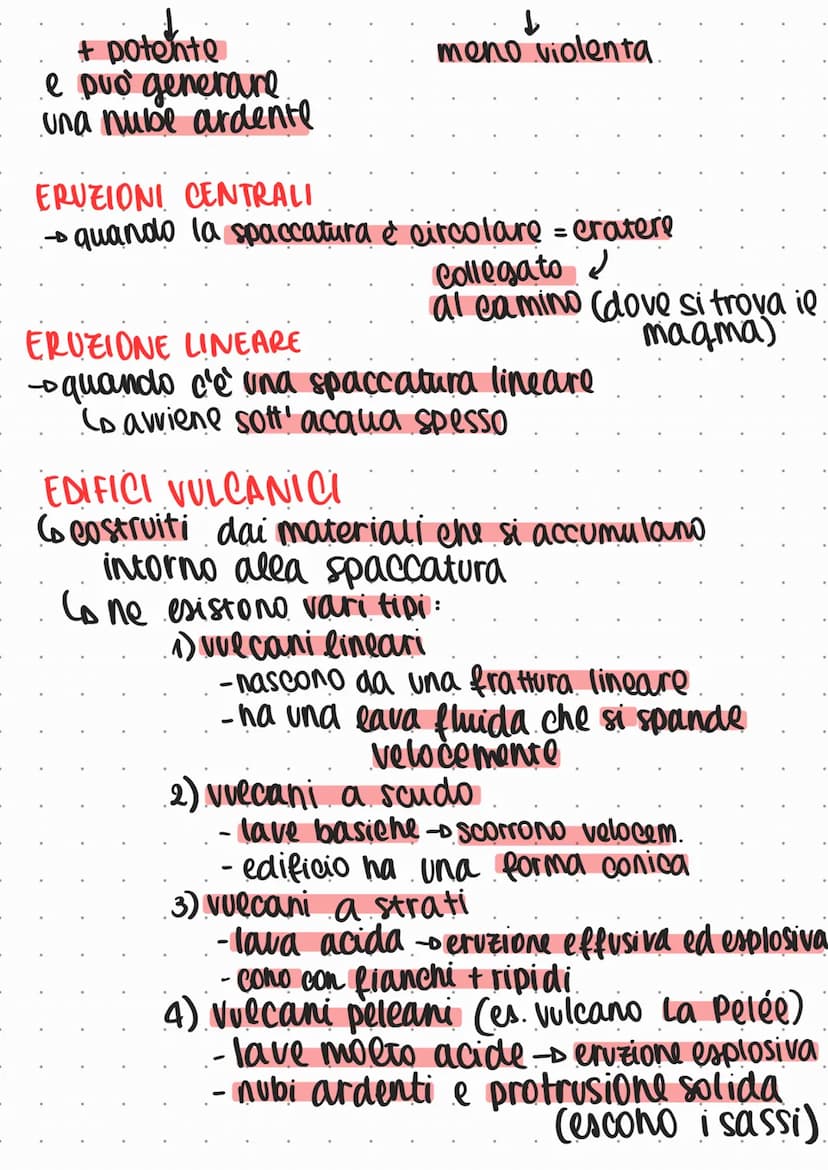 ↓ ↓
+ potente meno violenta
e può generare
una nube ardente
ERUZIONI CENTRALI
→ quando la spaccatura è circolare = cratere
collegato ↙
al camino (dove si trova il
magma)
ERUZIONE LINEARE
→ quando c'è una spaccatura lineare
↳ avviene sott'acqua spesso
EDIFICI VULCANICI
↳ costruiti dai materiali che si accumulano
intorno alla spaccatura
↳ ne esistono vari tipi:
1) vulcani lineari
- nascono da una frattura lineare
- ha una lava fluida che si spande
velocemente
2) vulcani a scudo
- lave basiche → scorrono velocem.
- edificio ha una forma conica
3) vulcani a strati
- lava acida → eruzione effusiva ed esplosiva
- cono con fianchi + ripidi
4) vulcani peleani (es. vulcano La Pelée)
- lave molto acide → eruzione esplosiva
- nubi ardenti e protrusione solida
(escono i sassi)